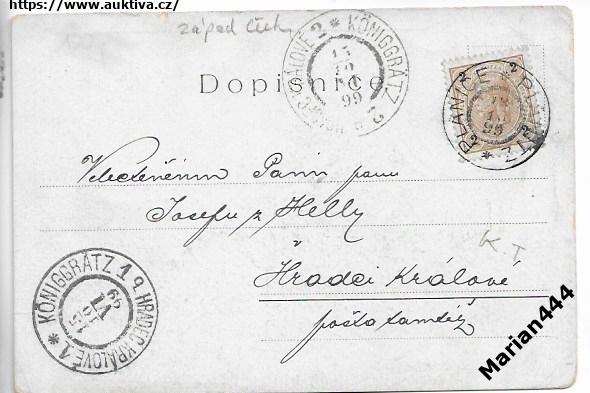 https://www.auktiva.cz/
západ Čechy
KÖNIGGRÄTZ 2 HRADEC KRÁLOVÉ 2
99
Dopisnice
PLANICE
99
Velectěnému Pánu panu
Josefu z Helly
v
Hradci Králové
pošta tamtéž
K T
KÖNIGGRÄTZ 1 HRADEC KRÁLOVÉ 1
99
Marian444